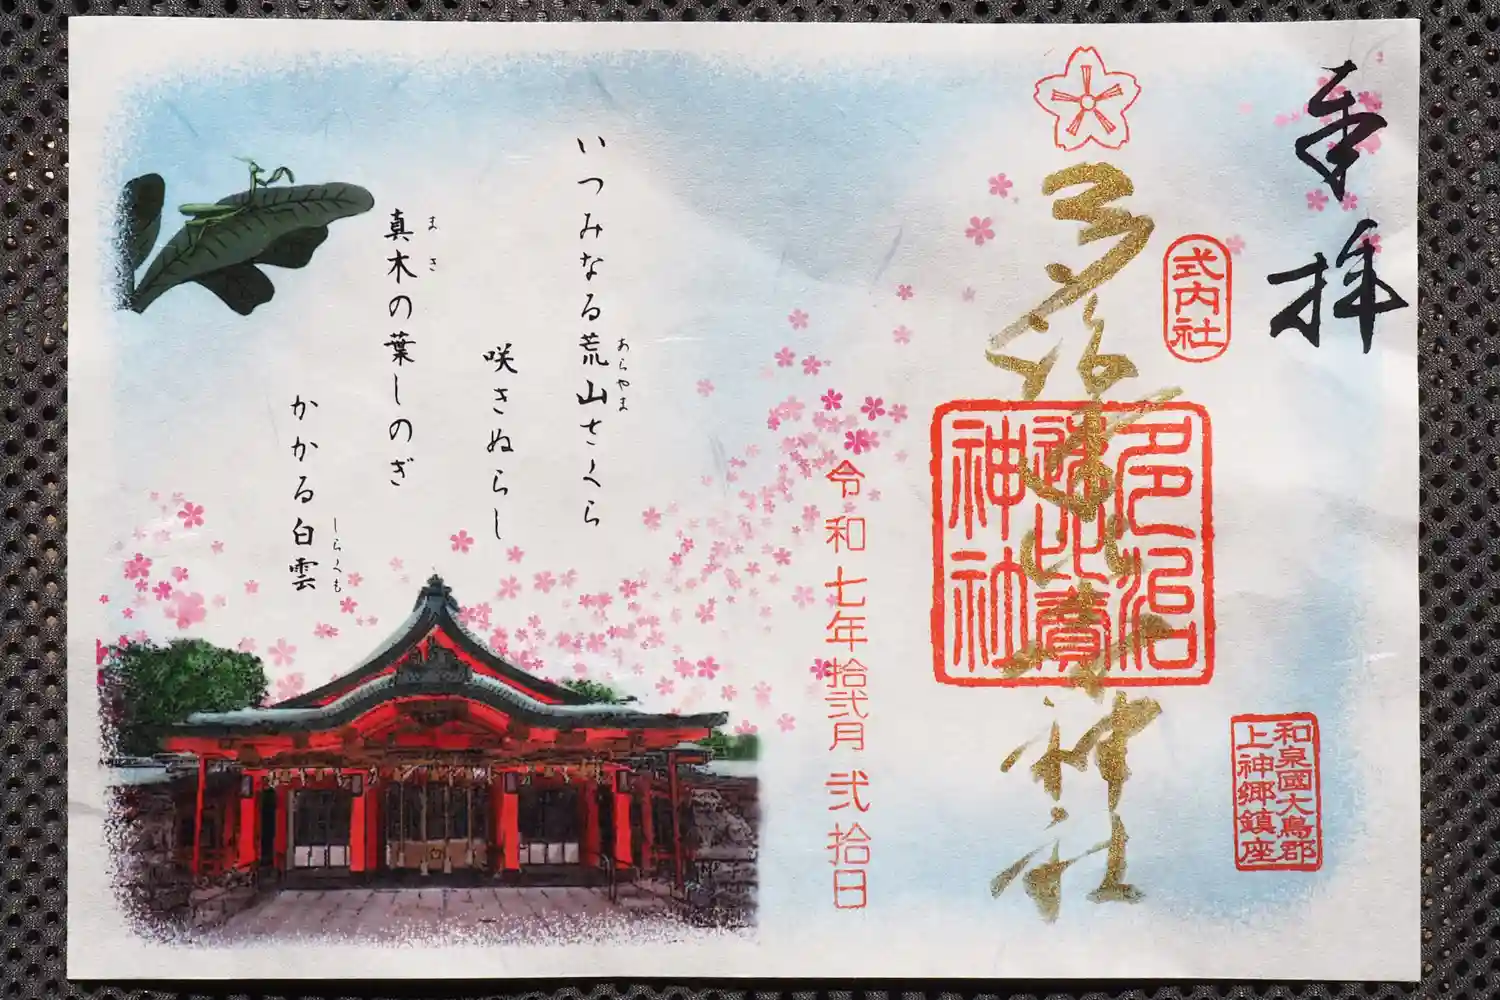 奉拝
式内社
和泉國大鳥郡
上神郷鎮座
多治速比賣神社
多治
速比賣
神社
令和七年拾弐月弐拾日
いつみなる荒山さくら
あらやま
咲きぬらし
真木の葉しのぎ
まき
かかる白雲
しらくも